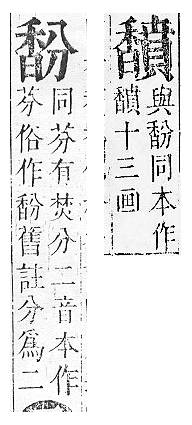 馩
與馚同本作
馩十三画
馚
同芬有焚分二音本作
芬俗作馚舊註分爲二